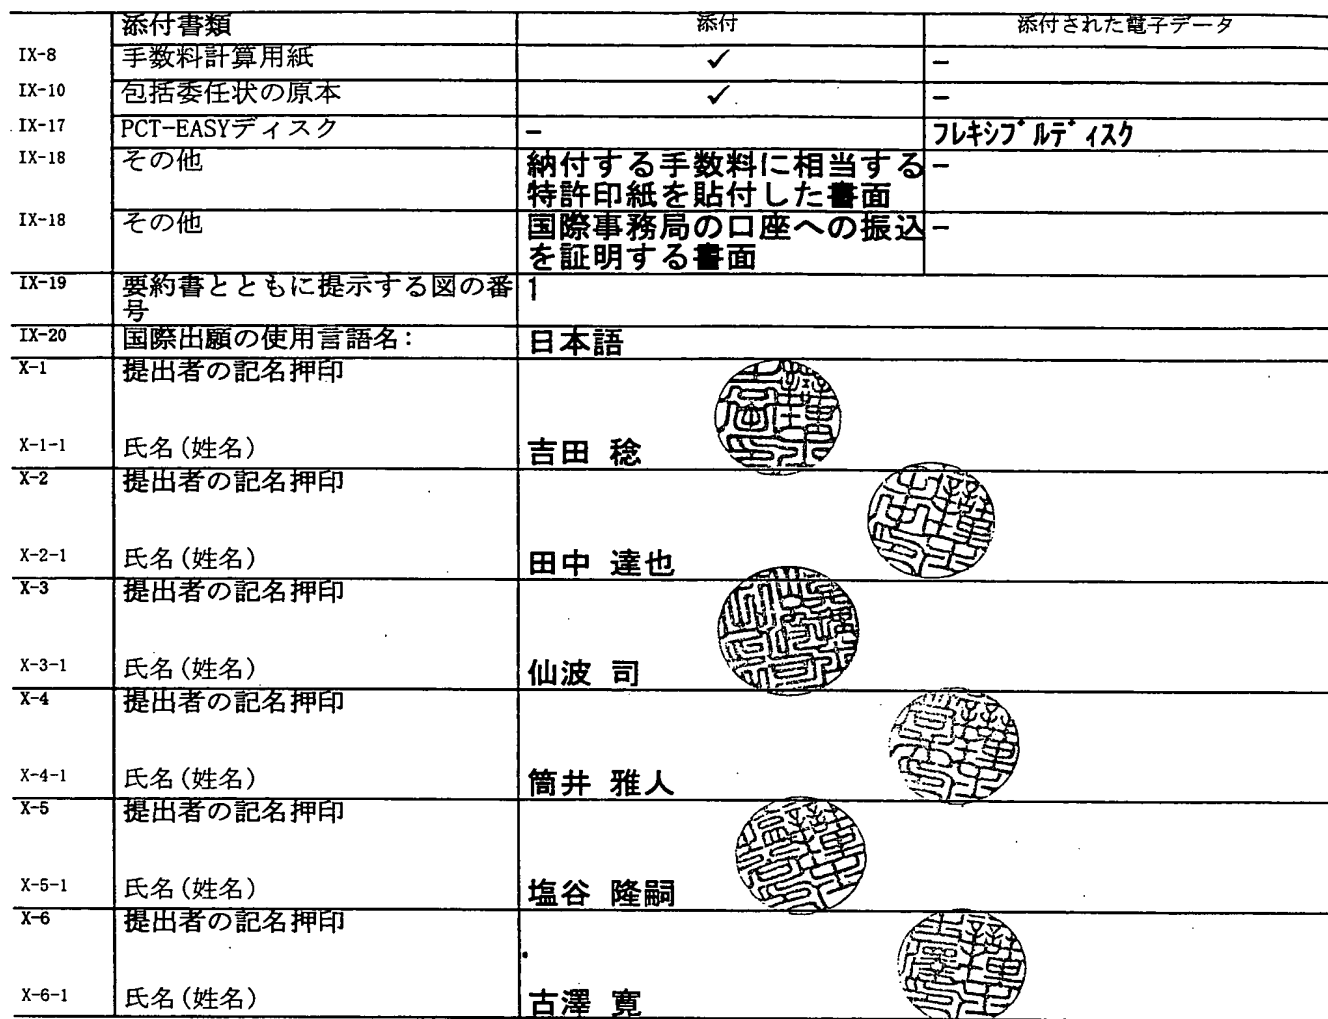 添付書類 添付 添付された電子データ
IX-8 手数料計算用紙 ✓ −
IX-10 包括委任状の原本 ✓ −
IX-17 PCT-EASYディスク − フレキシブルディスク
IX-18 その他 納付する手数料に相当する −
特許印紙を貼付した書面
IX-18 その他 国際事務局の口座への振込 −
を証明する書面
IX-19 要約書とともに提示する図の番 1
号
IX-20 国際出願の使用言語名: 日本語
X-1 提出者の記名押印
X-1-1 氏名(姓名) 吉田 稔
X-2 提出者の記名押印
X-2-1 氏名(姓名) 田中 達也
X-3 提出者の記名押印
X-3-1 氏名(姓名) 仙波 司
X-4 提出者の記名押印
X-4-1 氏名(姓名) 筒井 雅人
X-5 提出者の記名押印
X-5-1 氏名(姓名) 塩谷 隆嗣
X-6 提出者の記名押印
X-6-1 氏名(姓名) 古澤 寛